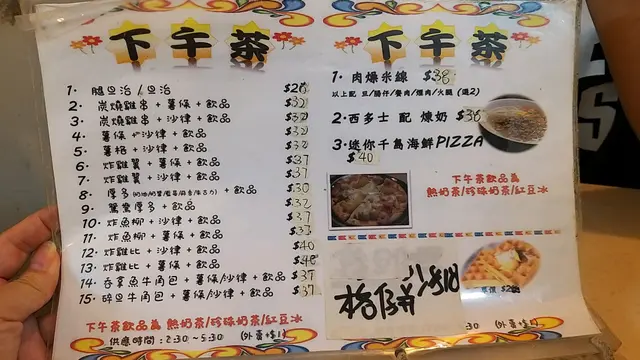 下午茶
1. 腿旦治 / 旦治 $26
2. 炭燒雞串 + 薯條 + 飲品 $32
3. 炭燒雞串 + 沙律 + 飲品 $32
4. 薯條 + 沙律 + 飲品 $32
5. 薯格 + 沙律 + 飲品 $32
6. 炸雞翼 + 薯條 + 飲品 $37
7. 炸雞翼 + 沙律 + 飲品 $37
8. 厚多 + 飲品 $30
9. 鴛鴦厚多 + 飲品 $32
10. 炸魚柳 + 沙律 + 飲品 $37
11. 炸魚柳 + 薯條 + 飲品
12. 炸雞比 + 沙律 + 飲品 $40
13. 炸雞比 + 薯條 + 飲品
14. 吞拿魚牛角包 + 薯條/沙律 + 飲品 $37
15. 碎旦牛角包 + 薯條/沙律 + 飲品 $37
下午茶飲品為 熱奶茶/珍珠奶茶/紅豆冰
供應時間：2:30~5:30
下午茶
1. 肉燥米線 $38
以上配 旦/腸仔/餐肉/煙肉/火腿 (選2)
2. 西多士 配 煉奶 $36
3. 迷你千島海鮮PIZZA
$40
下午茶飲品為
熱奶茶/珍珠奶茶/紅豆冰